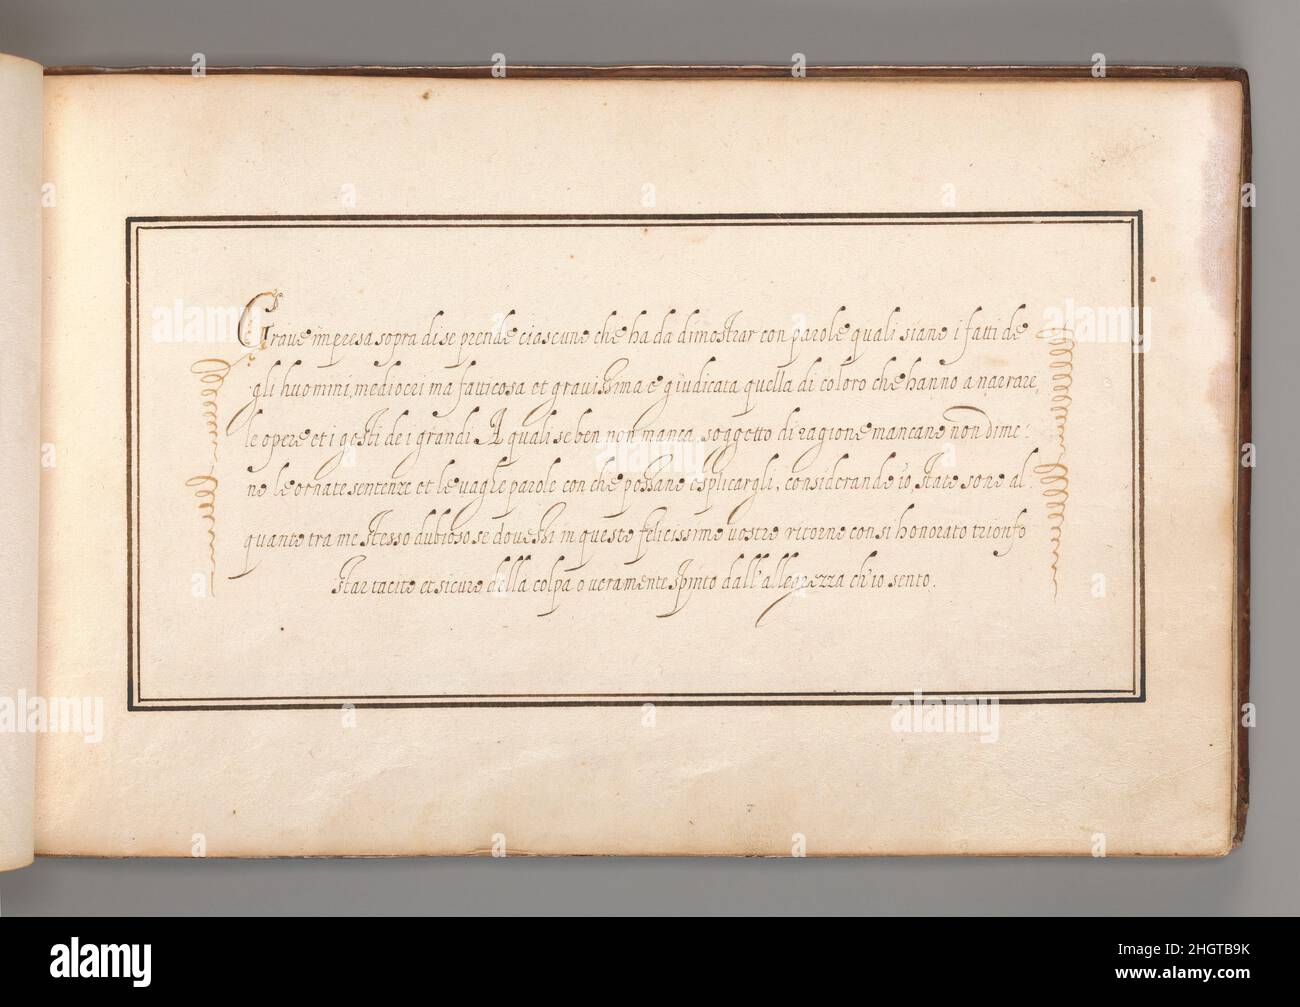 Grave impresa sopra di se prende ciascuno che ha da dimostrar con parole quali siano i fatti de
gli huomini, mediocri ma fatticosa et gravissima e giudicata quella di coloro che hanno a narrare,
le opere et i gesti de i grandi. A quali se ben non manca, soggetto di ragione mancano non dime:
no le ornate sentenze et le vaghe parole con che possano esplicargli, considerando io, stato sono al
quanto tra me stesso dubioso se dovessi in questo felicissimo vostro ritorno con si honorato trionfo
star tacito et sicuro della colpa o veramente spinto dall'allegrezza ch'io sento.
alamy
alamy
Image ID: 2HGTB9K
www.alamy.com